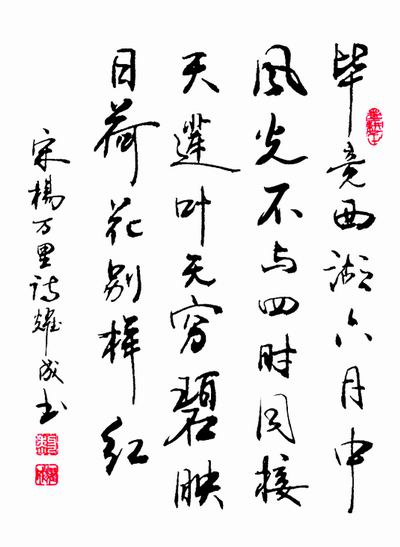 毕竟西湖六月中
風光不与四时同接
天蓮叶无穷碧映
日荷花别样红
宋楊万里诗耀成书